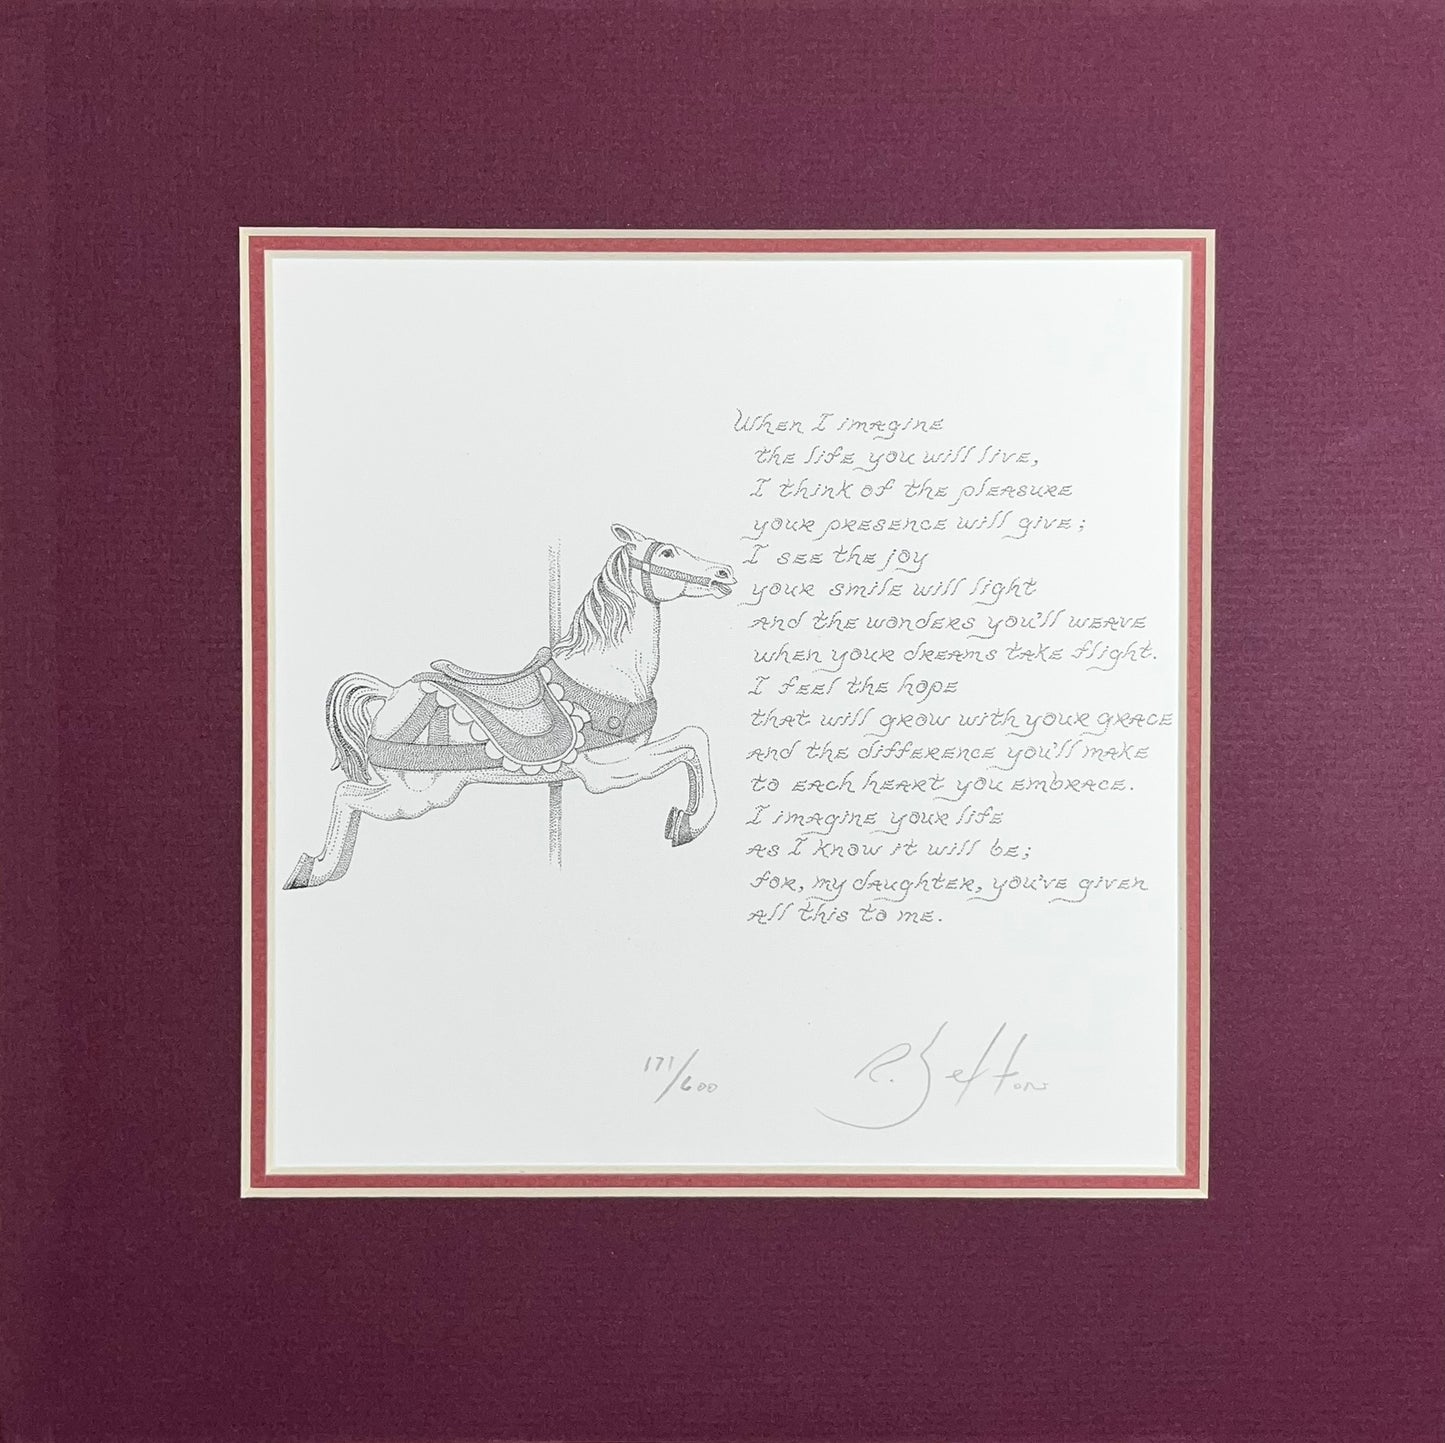 When I imagine
the life you will live,
I think of the pleasure
your presence will give;
I see the joy
your smile will light
and the wonders you'll weave
when your dreams take flight.
I feel the hope
that will grow with your grace
and the difference you'll make
to each heart you embrace.
I imagine your life
as I know it will be;
for, my daughter, you've given
all this to me.
171/600
R. Sexton